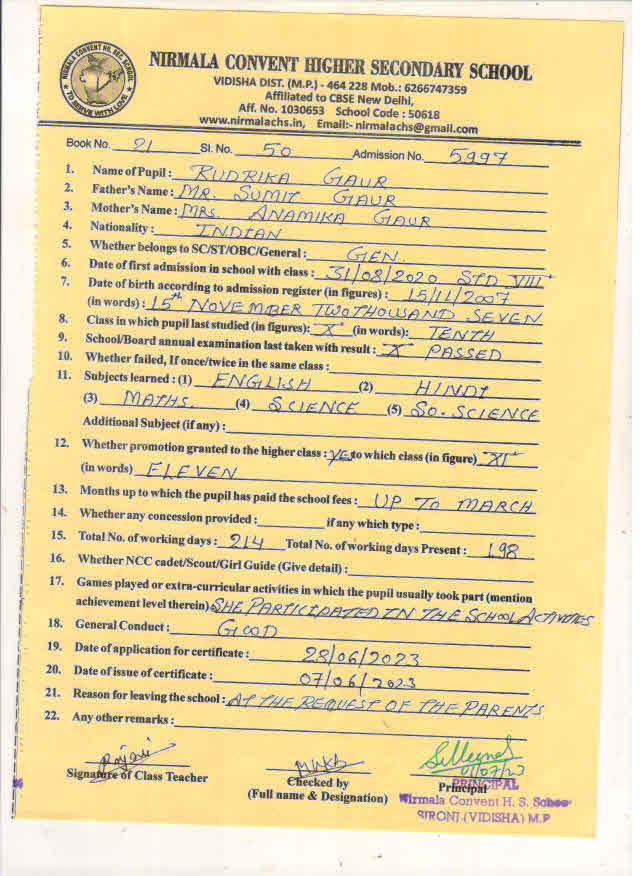 NIRMALA CONVENT HR. SEC. SCHOOL
TO SERVE WITH LOVE
NIRMALA CONVENT HIGHER SECONDARY SCHOOL
VIDISHA DIST. (M.P.) - 464 228 Mob.: 6266747359
Affiliated to CBSE New Delhi,
Aff. No. 1030653 School Code : 50618
www.nirmalachs.in, Email:- nirmalachs@gmail.com
Book No. 21 Sl. No. 50 Admission No. 5997
1. Name of Pupil : RUDRIKA GAUR
2. Father's Name : MR. SUMIT GAUR
3. Mother's Name : MRS. ANAMIKA GAUR
4. Nationality : INDIAN
5. Whether belongs to SC/ST/OBC/General : GEN.
6. Date of first admission in school with class : 31/08/2020 STD VIIIth
7. Date of birth according to admission register (in figures) : 15/11/2007
(in words) : 15th NOVEMBER TWO THOUSAND SEVEN
8. Class in which pupil last studied (in figures): Xth (in words): TENTH
9. School/Board annual examination last taken with result : Xth PASSED
10. Whether failed, If once/twice in the same class :
11. Subjects learned : (1) ENGLISH (2) HINDI
(3) MATHS. (4) SCIENCE (5) SO. SCIENCE
Additional Subject (if any) :
12. Whether promotion granted to the higher class : YES to which class (in figure) XIth
(in words) ELEVEN
13. Months up to which the pupil has paid the school fees : UP TO MARCH
14. Whether any concession provided : if any which type :
15. Total No. of working days : 214 Total No. of working days Present : 198
16. Whether NCC cadet/Scout/Girl Guide (Give detail) :
17. Games played or extra-curricular activities in which the pupil usually took part (mention
achievement level therein) : SHE PARTICIPATED IN THE SCHOOL ACTIVITIES
18. General Conduct : GOOD
19. Date of application for certificate : 28/06/2023
20. Date of issue of certificate : 07/06/2023
21. Reason for leaving the school : AT THE REQUEST OF THE PARENTS
22. Any other remarks :
Signature of Class Teacher
Checked by
(Full name & Designation)
Principal
PRINCIPAL
Nirmala Convent H. S. School
SIRONJ (VIDISHA) M.P